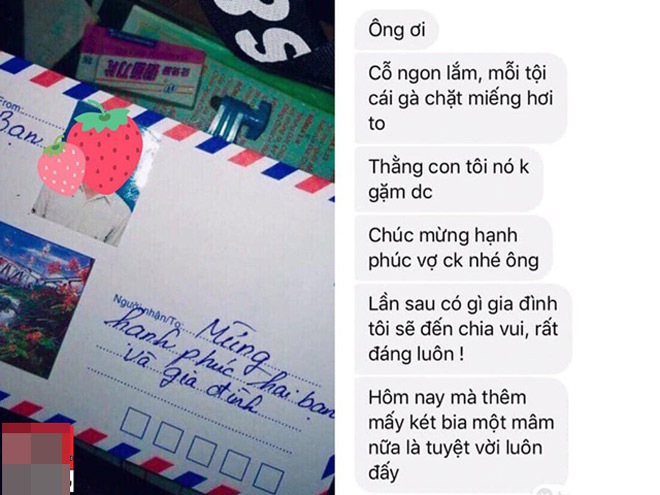 From:
Bạn
Người nhận/To:
Mừng
hạnh phúc hai bạn
và gia đình
Ông ơi
Cỗ ngon lắm, mỗi tội
cái gà chặt miếng hơi
to
Thằng con tôi nó k
gặm dc
Chúc mừng hạnh
phúc vợ ck nhé ông
Lần sau có gì gia đình
tôi sẽ đến chia vui, rất
đáng luôn !
Hôm nay mà thêm
mấy két bia một mâm
nữa là tuyệt vời luôn
đấy